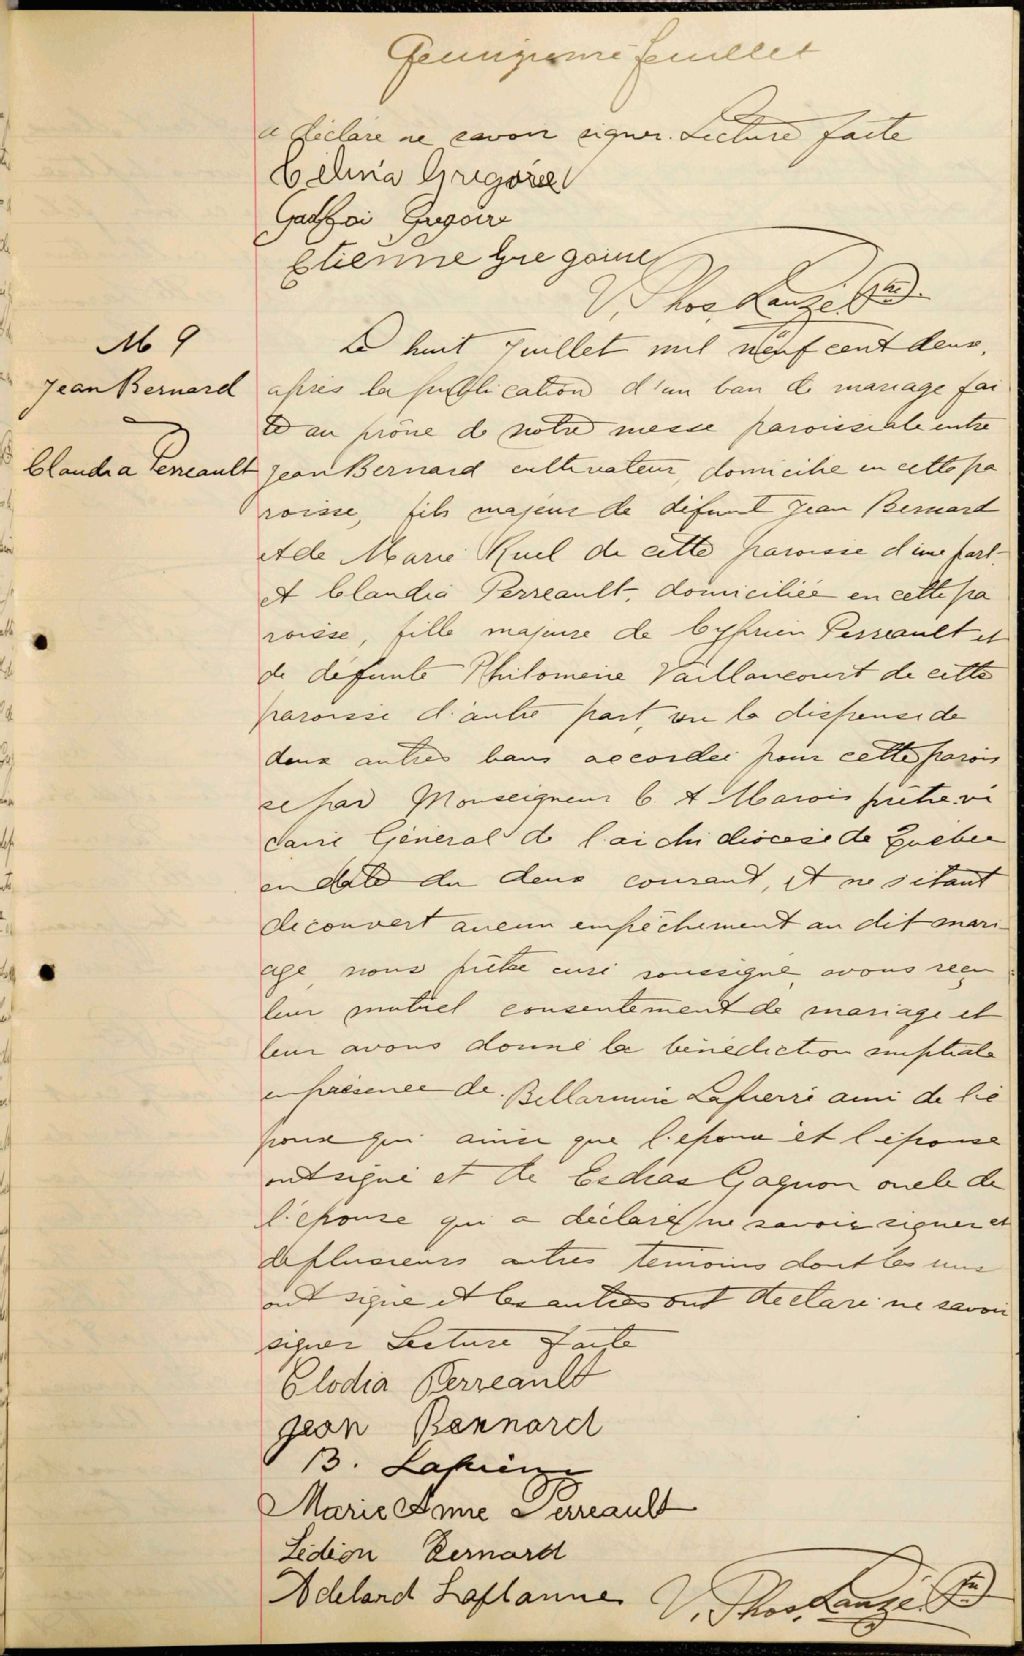 Quinzième feuillet
a déclaré ne savoir signer. Lecture faite
Célina Grégoire
Godfroi Gregoire
Etienne Gregoire
V. Thos. Lauzé Ptre.
M 9
Jean Bernard
Claudia Perreault
Le huit Juillet mil neuf cent deux,
après la publication d'un ban de mariage fai
te au prône de notre messe paroissiale entre
Jean Bernard cultivateur, domicilié en cette pa
roisse, fils majeur de défunt Jean Bernard
et de Marie Ruel de cette paroisse d'une part.
et Claudia Perreault, domiciliée en cette pa
roisse, fille majeure de Cyprien Perreault et
de défunte Philomène Vaillancourt de cette
paroisse d'autre part, vu la dispense de
deux autres bans accordée pour cette parois
se par Monseigneur C A Marois prêtre-vi
caire Général de l'archidiocèse de Québec
en date du deux courant, et ne s'étant
découvert aucun empêchement au dit mari
age, nous prêtre curé soussigné, avons reçu
leur mutuel consentement de mariage et
leur avons donné la bénédiction nuptiale
en présence de Bellarmin Lapierre ami de l'é
poux qui ainsi que l'époux et l'épouse
ont signé et de Esdras Gagnon oncle de
l'épouse qui a déclaré ne savoir signer et
de plusieurs autres témoins dont les uns
ont signé et les autres ont déclaré ne savoir
signer Lecture faite
Clodia Perreault
Jean Bernard
B. Lapierre
Marie Anne Perreault
Lédion Bernard
Adelard Laflamme V. Thos. Lauzé Ptre